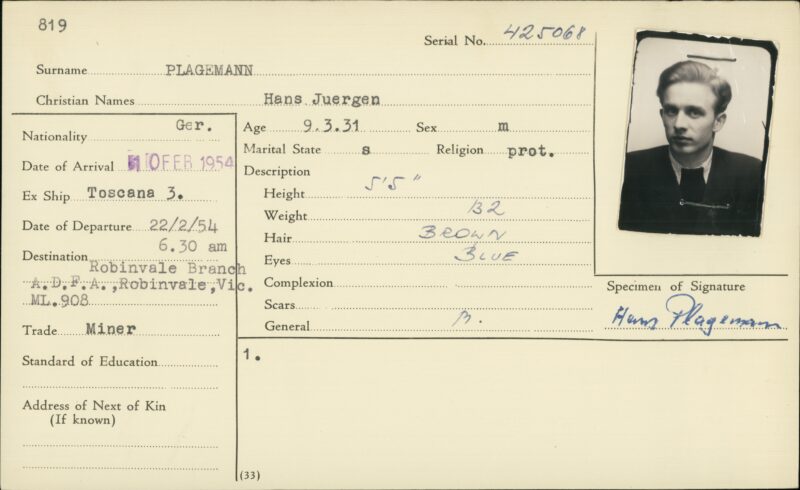 819
Serial No. 425068
Surname PLAGEMANN
Christian Names Hans Juergen
Nationality Ger.
Date of Arrival 10 FEB 1954
Ex Ship Toscana 3.
Date of Departure 22/2/54
6.30 am
Destination Robinvale Branch
A.D.F.A.,Robinvale,Vic.
ML.908
Trade Miner
Standard of Education
Address of Next of Kin
(If known)
Age 9.3.31 Sex m
Marital State s Religion prot.
Description
Height 5'5"
Weight
Hair BROWN
Eyes BLUE
Complexion
Scars
General
1.
(33)
Specimen of Signature
Hans Plagemann